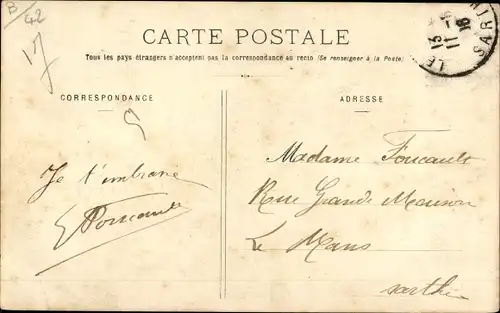 B/42
CARTE POSTALE
Tous les pays étrangers n'acceptent pas la correspondance au recto (Se renseigner à la Poste)
CORRESPONDANCE
ADRESSE
Je t'embrasse
Foucault
Madame Foucault
Rue Grande Maison
Le Mans
Sarthe
LE
SARTH